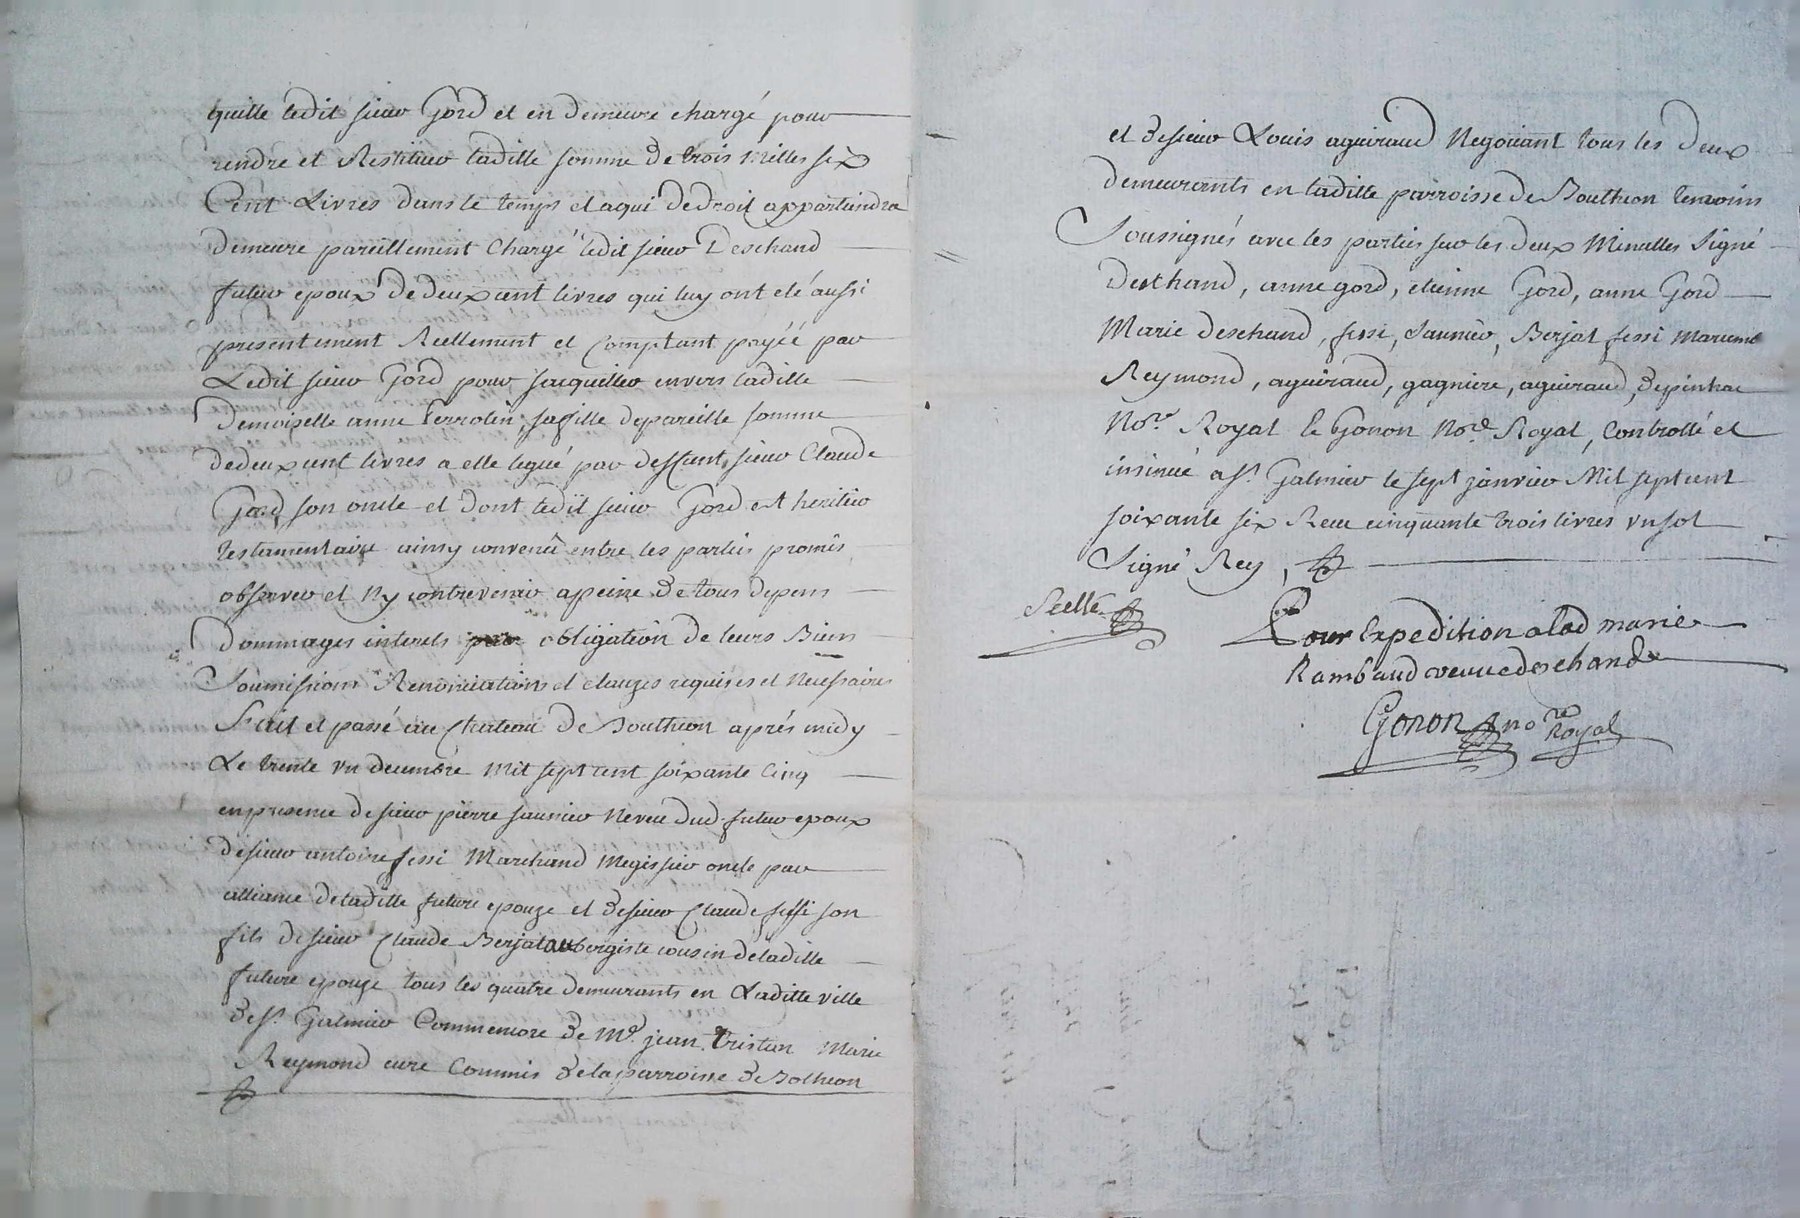 quitte ledit sieur Gord et en demeure chargé pour
rendre et Restituer ladille somme de trois milles six
Cent Livres dans le temps et aqui de droit appartiendra
demeure pareillement Chargé ledit sieur Deschand
futur epoux de deux cent livres qui luy ont eté aussi
presentement Reellement et Comptant payéé par
Ledit sieur Gord pour sacquitter envers ladille
Demoiselle anne Ferrotin, sa fille de pareille somme
de deux cent livres a elle legué par deffunt sieur Claude
Gord son oncle et dont ledit sieur Gord est heritier
testamentaire ainsy convenû entre les parties promis
observer et Ny contrevenir apeine de tous depens
Dommages interets obligation de leurs Biens
Soumissions Renonciations et clauzes requises et Necessaires
Fait et passé au Chateau de Boutheon aprés midy
Le trente un decembre Mil sept cent soixante Cinq
en presence de sieur pierre saunier Neveu dud. futur epoux
de sieur antoine fessi Marchand Megissier oncle par
alliance de ladille future epouze et de sieur Claude fessi son
fils de sieur Claude Berjat aubergiste cousin de ladille
future epouze tous les quatre demeurants en Laditte ville
de St. Galmier Commemore de Me. jean tristan Marie
Reymond cure Commis de la parroisse de Botheon
et de sieur Louis aguiraud Negotiant tous les deux
demeurants en ladille parroisse de Boutheon temoins
Soussignés avec les parties sur les deux Minuttes Signé
Deschand, anne gord, etienne Gord, anne Gord
Marie deschand, fessi, Saunier, Berjat fessi
Reymond, aguiraud, gagniere, aguiraud, depinhac
Nore. Royal et Gonon Nore. Royal, Controllé et
insinué a St. Galmier le sept janvier Mil sept cent
soixante six Receu cinquante trois livres un sol
Signé Rey,
Scellé
Pour Expedition a lad marie
Rambaud veuve deschand
Gonon nore Royal